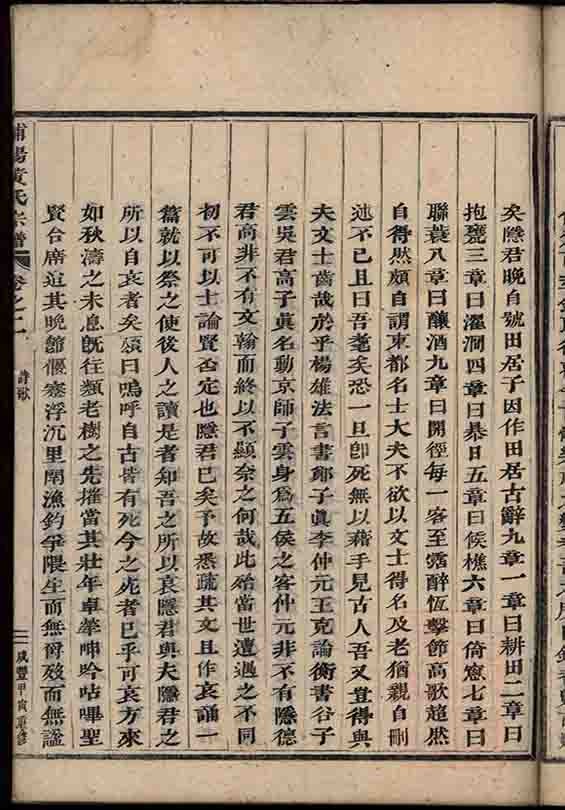 矣隱君晚自號田居子因作田居古辭九章一章曰耕田二章曰
抱甕三章曰濯澗四章曰暴日五章曰候樵六章曰倚窻七章曰
聯蓑八章曰釀酒九章曰開徑每一客至酒醉恆擊節高歌超然
自得然頗自謂東都名士大夫不欲以文士得名及老猶親自刪
述不已且曰吾耄矣恐一旦卽死無以藉手見古人吾又豈得與
夫文士齒哉於乎楊雄法言書鄭子眞李仲元王充論衡書谷子
雲吳君高子眞名動京師子雲身爲五侯之客仲元非不有隱德
君高非不有文翰而終以不顯奈之何哉此殆當世遭遇之不同
初不可以士論賢否定也隱君已矣予故悉疏其文且作哀誦一
篇就以祭之使後人之讀是者知吾之所以哀隱君與夫隱君之
所以自哀者矣頌曰嗚呼自古皆有死今之死者已乎可哀方來
如秋濤之未息旣往類老樹之先摧當其壯年卓犖呻吟咕嗶聖
賢台席迫其晚節偃蹇浮沉里閈漁釣爭隈生而無爵歿而無謚
浦陽黃氏宗譜
卷之二
詩歌
咸豐甲寅重修